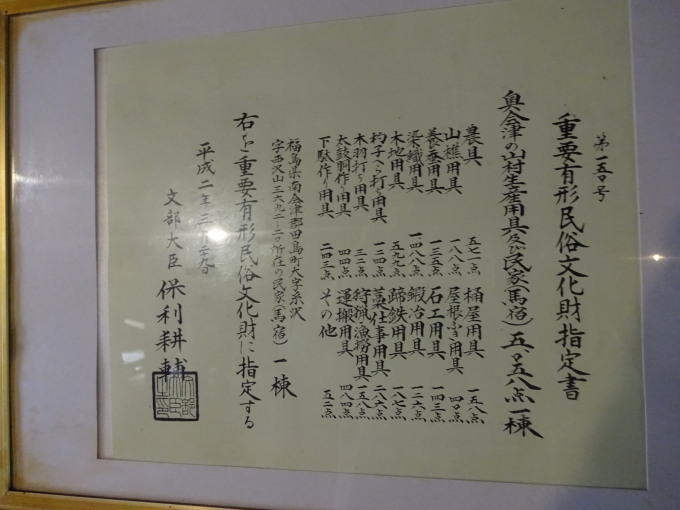 第一五〇号
重要有形民俗文化財指定書
奥会津の山村生産用具及び民家(馬宿) 五、〇五八点一棟
農具 五七一点 桶屋用具 一五八点
山樵用具 一八八点 屋根ふき用具 四〇点
養蚕用具 一三五点 石工用具 一四三点
染織用具 一四八八点 鍛冶用具 一二六点
木地用具 五九九点 蹄鉄用具 一八七点
杓子へら打ち用具 一二四点 藁仕事用具 二八六点
木羽打ち用具 三二点 狩猟漁撈用具 一五八点
太鼓胴作り用具 四四点 運搬用具 四八四点
下駄作り用具 二四三点 その他 五二点
福島県南会津郡田島町大字糸沢
字西沢山三六九二-二〇所在の民家(馬宿) 一棟
右を重要有形民俗文化財に指定する
平成二年三月二九日
文部大臣 保利耕輔